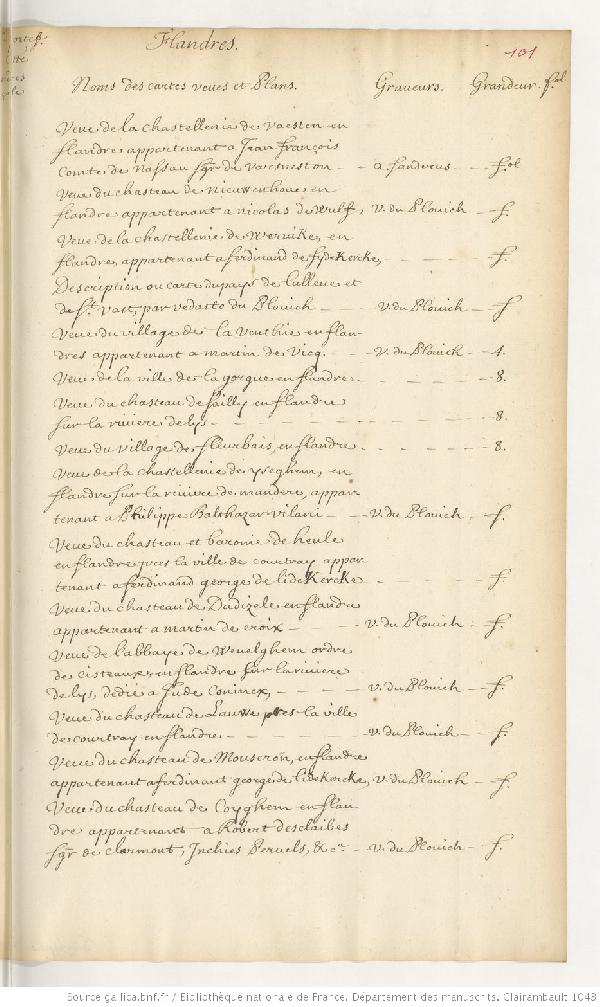 Flandres.
101
Noms des cartes veues et Plans. Graueurs. Grandeur. fol.
Veue de la chastellenie de Vaesten en
flandre appartenant a Jean françois
Comte de Nassau sgr de Vaesneston - - a. sanderus - - fol
Veue du chasteau de nieuwenhoue en
flandre appartenant a nicolas de Wulf, v. du Plouich - f.
Veue de la chastellenie de Wervike, en
flandre, appartenant a ferdinand de lijdeKercke, - - - - f.
Description ou carte du pays de Lalleue et
de St. vaст, par vedasto du Plouich - - v. du Plouich - f
Veue du village de la Vouthie en flan-
dres appartenant a martin de Vicq. - - v. du Plouich - 4.
Veue de la ville de la gorgue en flandre. - - - - 8.
Veue du chasteau de sailly en flandre
sur la riuiere de lys - - - - - 8.
Veue du village de fleurbais, en flandre. - - - - 8.
Veue de la chastellenie de yseghem, en
flandre sur la riuiere de mandere, appar-
tenant a Philippe Balthazar vilani - - v. du Plouich . f.
Veue du chasteau et baronie de heule
en flandre pres la ville de courtray appar
tenant a ferdinand george de lideKercke - - - - f
Veue du chasteau de Dadizele en flandre
appartenant a martin de croix - - - v. du Plouich . f.
Veue de l'abbaye de Weuelghem ordre
de cisteaux en flandre sur la riuiere
de lys, dedié a Jude Coninex, - - - - v. du Plouich - f.
Veue du chasteau de Lauwe pres la ville
de courtray en flandre - - - - - v. du Plouich - f.
Veue du chasteau de Mouscron, en flandre
appartenant a ferdinant george de lideKercke, v. du Plouich - f.
Veue du chasteau de Coyghem en flan
dre appartenant a Robert desclaibes
sgr de clermont, Inchies Pervels, &c. - v. du Plouich - f.
Source gallica.bnf.fr / Bibliothèque nationale de France. Département des manuscrits. Clairambault 1043